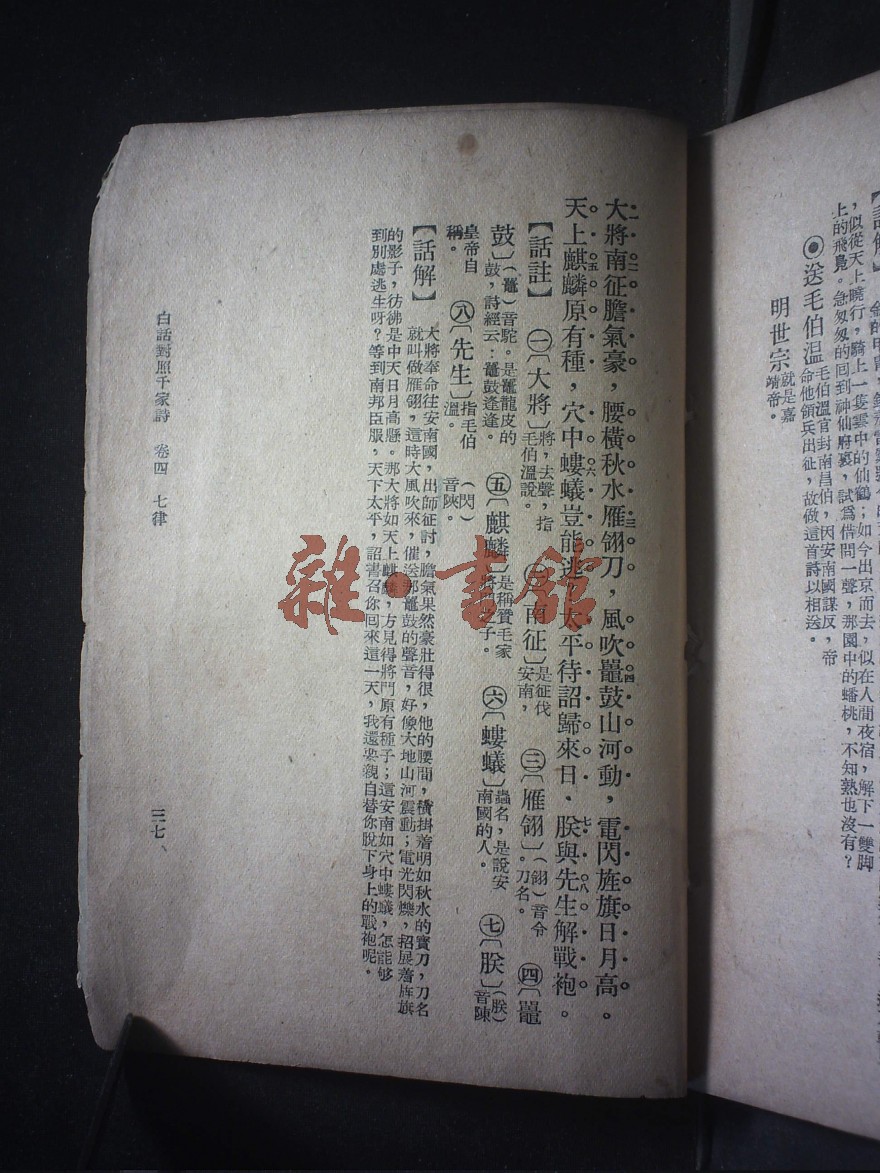 上的飛鳧。急匆匆的回到神仙府裏，試爲借問一聲，那園中的蟠桃，不知熟也沒有？
，似從天上曉行，騎上一隻雲中的仙鶴；如今出京而去，似在人間夜宿，解下一雙脚
◉送毛伯溫
毛伯溫官封南昌伯，因安南國謀反，帝
命他領兵出征，故做這首詩以相送。
明世宗
就是嘉
靖帝。
大將南征膽氣豪，腰橫秋水雁翎刀，風吹鼉鼓山河動，電閃旌旗日月高。
天上麒麟原有種，穴中螻蟻豈能逃，太平待詔歸來日，朕與先生解戰袍。
【話註】
㊀〔大將〕將，去聲，指毛伯溫說。
〔南征〕是征伐安南，
㊂〔雁翎〕（翎）音令。刀名。
㊃〔鼉
鼓〕（鼉）音駝。是鼉龍皮的鼓，詩經云：鼉鼓逢逢。
㊄〔麒麟〕是稱贊毛家將門之子。
㊅〔螻蟻〕蟲名，是說安南國的人。
㊆〔朕〕（朕）音陳
（閃）音陝。
皇帝自稱。
㊇〔先生〕指毛伯溫。
【話解】
大將奉命往安南國，出師征討，膽氣果然豪壯得很，他的腰間，橫掛着明如秋水的寶刀，刀名
就叫做雁翎，這時大風吹來，催送那鼉鼓的聲音，好像大地山河震動；電光閃爍，招展着旌旗
的影子，彷彿是中天日月高懸。那大將如天上麒麟，方見得將門原有種子；這安南如穴中螻蟻，怎能够
到別處逃生呀？等到南邦臣服，天下太平，詔書召你囘來這一天，我還要親自替你脫下身上的戰袍呢。
白話對照千家詩 卷四 七律
三七、
雜·書館